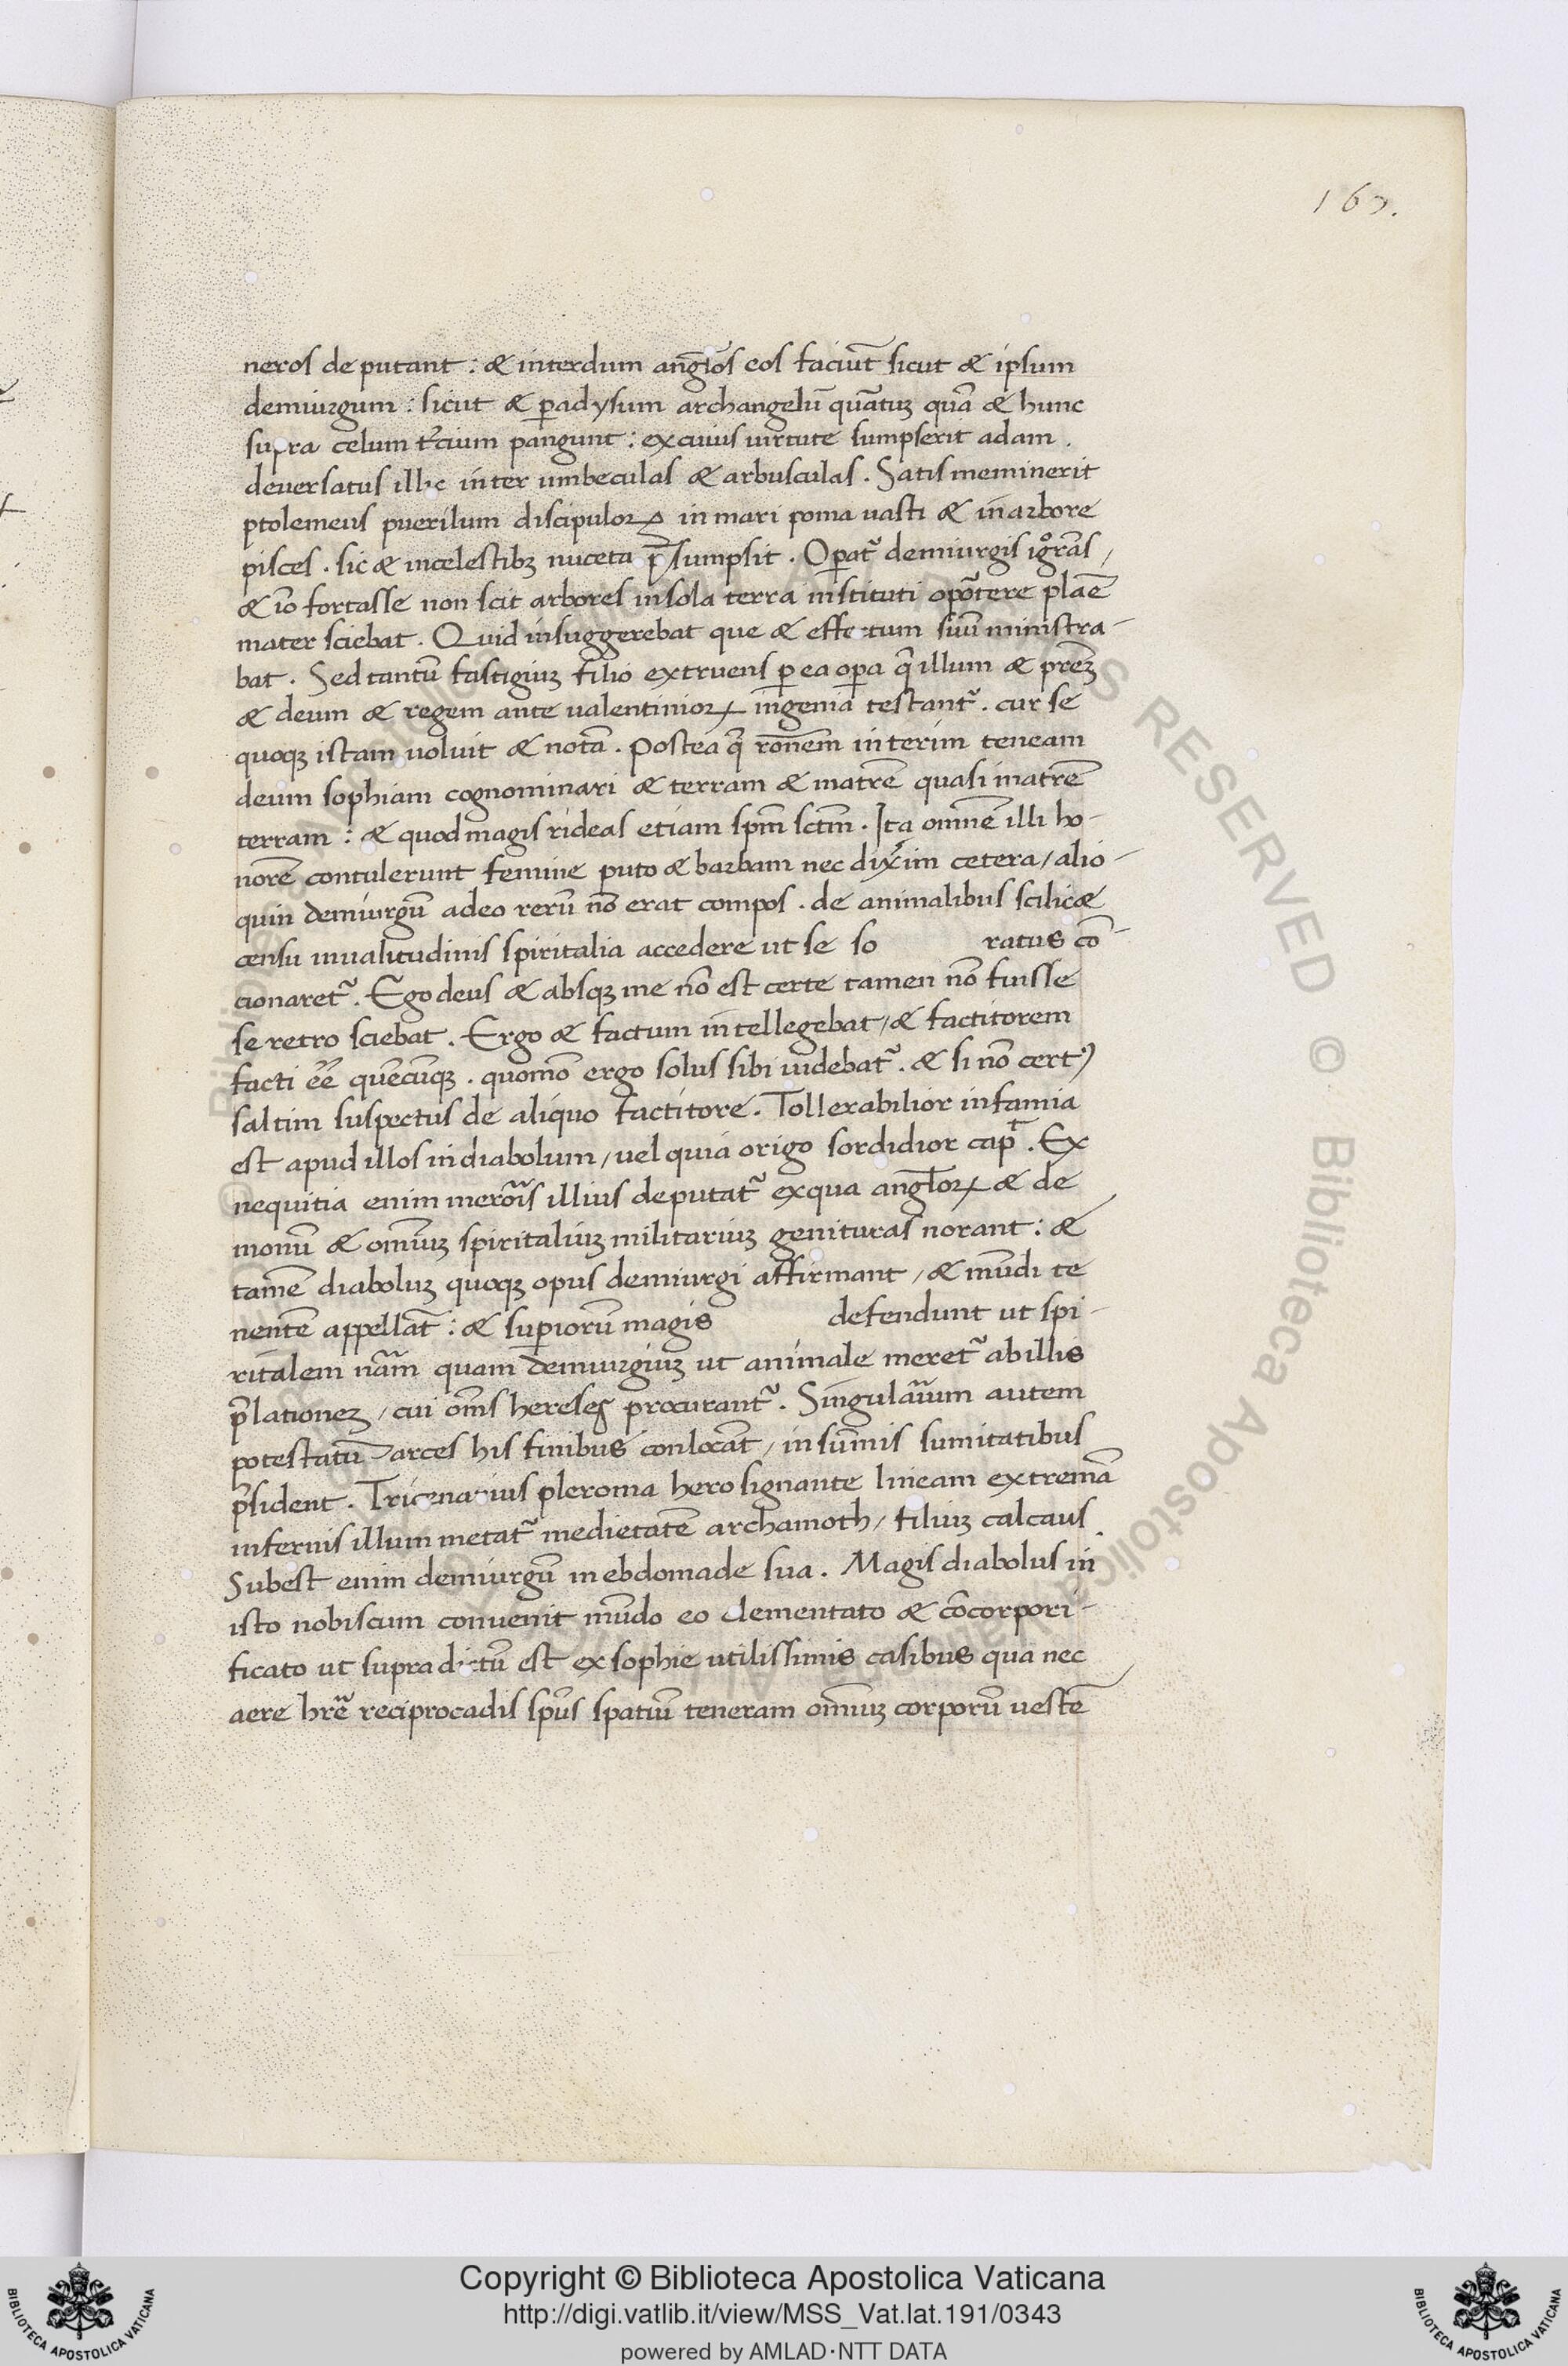 167.
neros deputant : & interdum angl̄os eos faciūt sicut & ipsum
demiurgum : sicut & ꝑadysum archangelū quātuꝫ quā & hunc
supra celum t̄cium pangunt : ex cuius uirtute sumpserit adam .
deuersatus illic inter umbeculas & arbusculas . Satis meminerit
ptolemeus puerilum discipuloꝝ in mari poma nasti & in arbore
pisces . sic & in celestibꝫ nuceta p̄sumpsit . Oꝑat᷑ demiurgis igr̄ās /
& iō fortasse non scit arbores in sola terra instituti oportere plaē
mater sciebat . Quid insuggerebat que & effectum suū ministra-
bat . Sed tantū fastigiuꝫ filio extruens ꝑ ea oꝑa q̄ illum & preꝫ
& deum & regem ante ualentinioꝝ ingenia testant᷑ . cur se
quoqꝫ istam uoluit & notā . Postea q̄ ronem̄ interim teneam
deum sophiam cognominari & terram & matrē quasi matrē
terram : & quod magis rideas etiam spm̄ sctm̄ . Ita omnē illi ho-
norē contulerunt femine puto & barbam nec dixīm cetera / alio-
quin demiurgū adeo rerū nō erat compos . de animalibus scilic&
censu inualitudinis spiritalia accedere ut se so ratus cō-
cionaret᷑ . Ego deus & absqꝫ me nō est certe tamen nō fuisse
se retro sciebat . Ergo & factum intellegebat / & factitorem
facti ēē quēcūqꝫ . quomō ergo solus sibi uidebat᷑ . & si nō certꝰ
saltim suspectus de aliquo factitore . Tollerabilior infamia
est apud illos in diabolum / uel quia origo sordidior capt̄ . Ex
nequitia enim merōis illius deputat᷑ ex qua angl̄oꝝ & de
monū & omniuꝫ spiritaliuꝫ militariuꝫ genituras norant : &
tamē diaboluꝫ quoqꝫ opus demiurgi affirmant / & mūdi te
nentē appellāt : & suꝑiorū magis defendunt ut spi-
ritalem nām quam demiurgiuꝫ ut animale meret᷑ ab illis
p̄lationeꝫ / cui om̄s hereses procurant᷑ . Singulārum autem
potestatū arces his finibus conlocāt / in sūmis sumitatibus
p̄sident . Tricenarius pleroma hero signante lineam extremā
infernis illum metat᷑ medietatē archamoth / filiuꝫ calcaus .
Subest enim demiurgū in ebdomade sua . Magis diabolus in
isto nobiscum conuenit mūdo eo elementato & cōcorpori-
ficato ut supra dictū est ex sophie utilissimis casibus qua nec
aere hr̄ē reciprocadis spūs spatiū teneram omniuꝫ corporū uestē
Copyright © Biblioteca Apostolica Vaticana
http://digi.vatlib.it/view/MSS_Vat.lat.191/0343
powered by AMLAD·NTT DATA